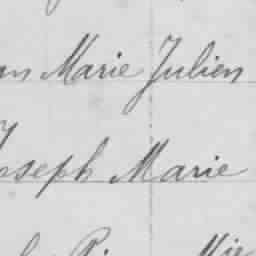 an Marie Julien
oseph Marie